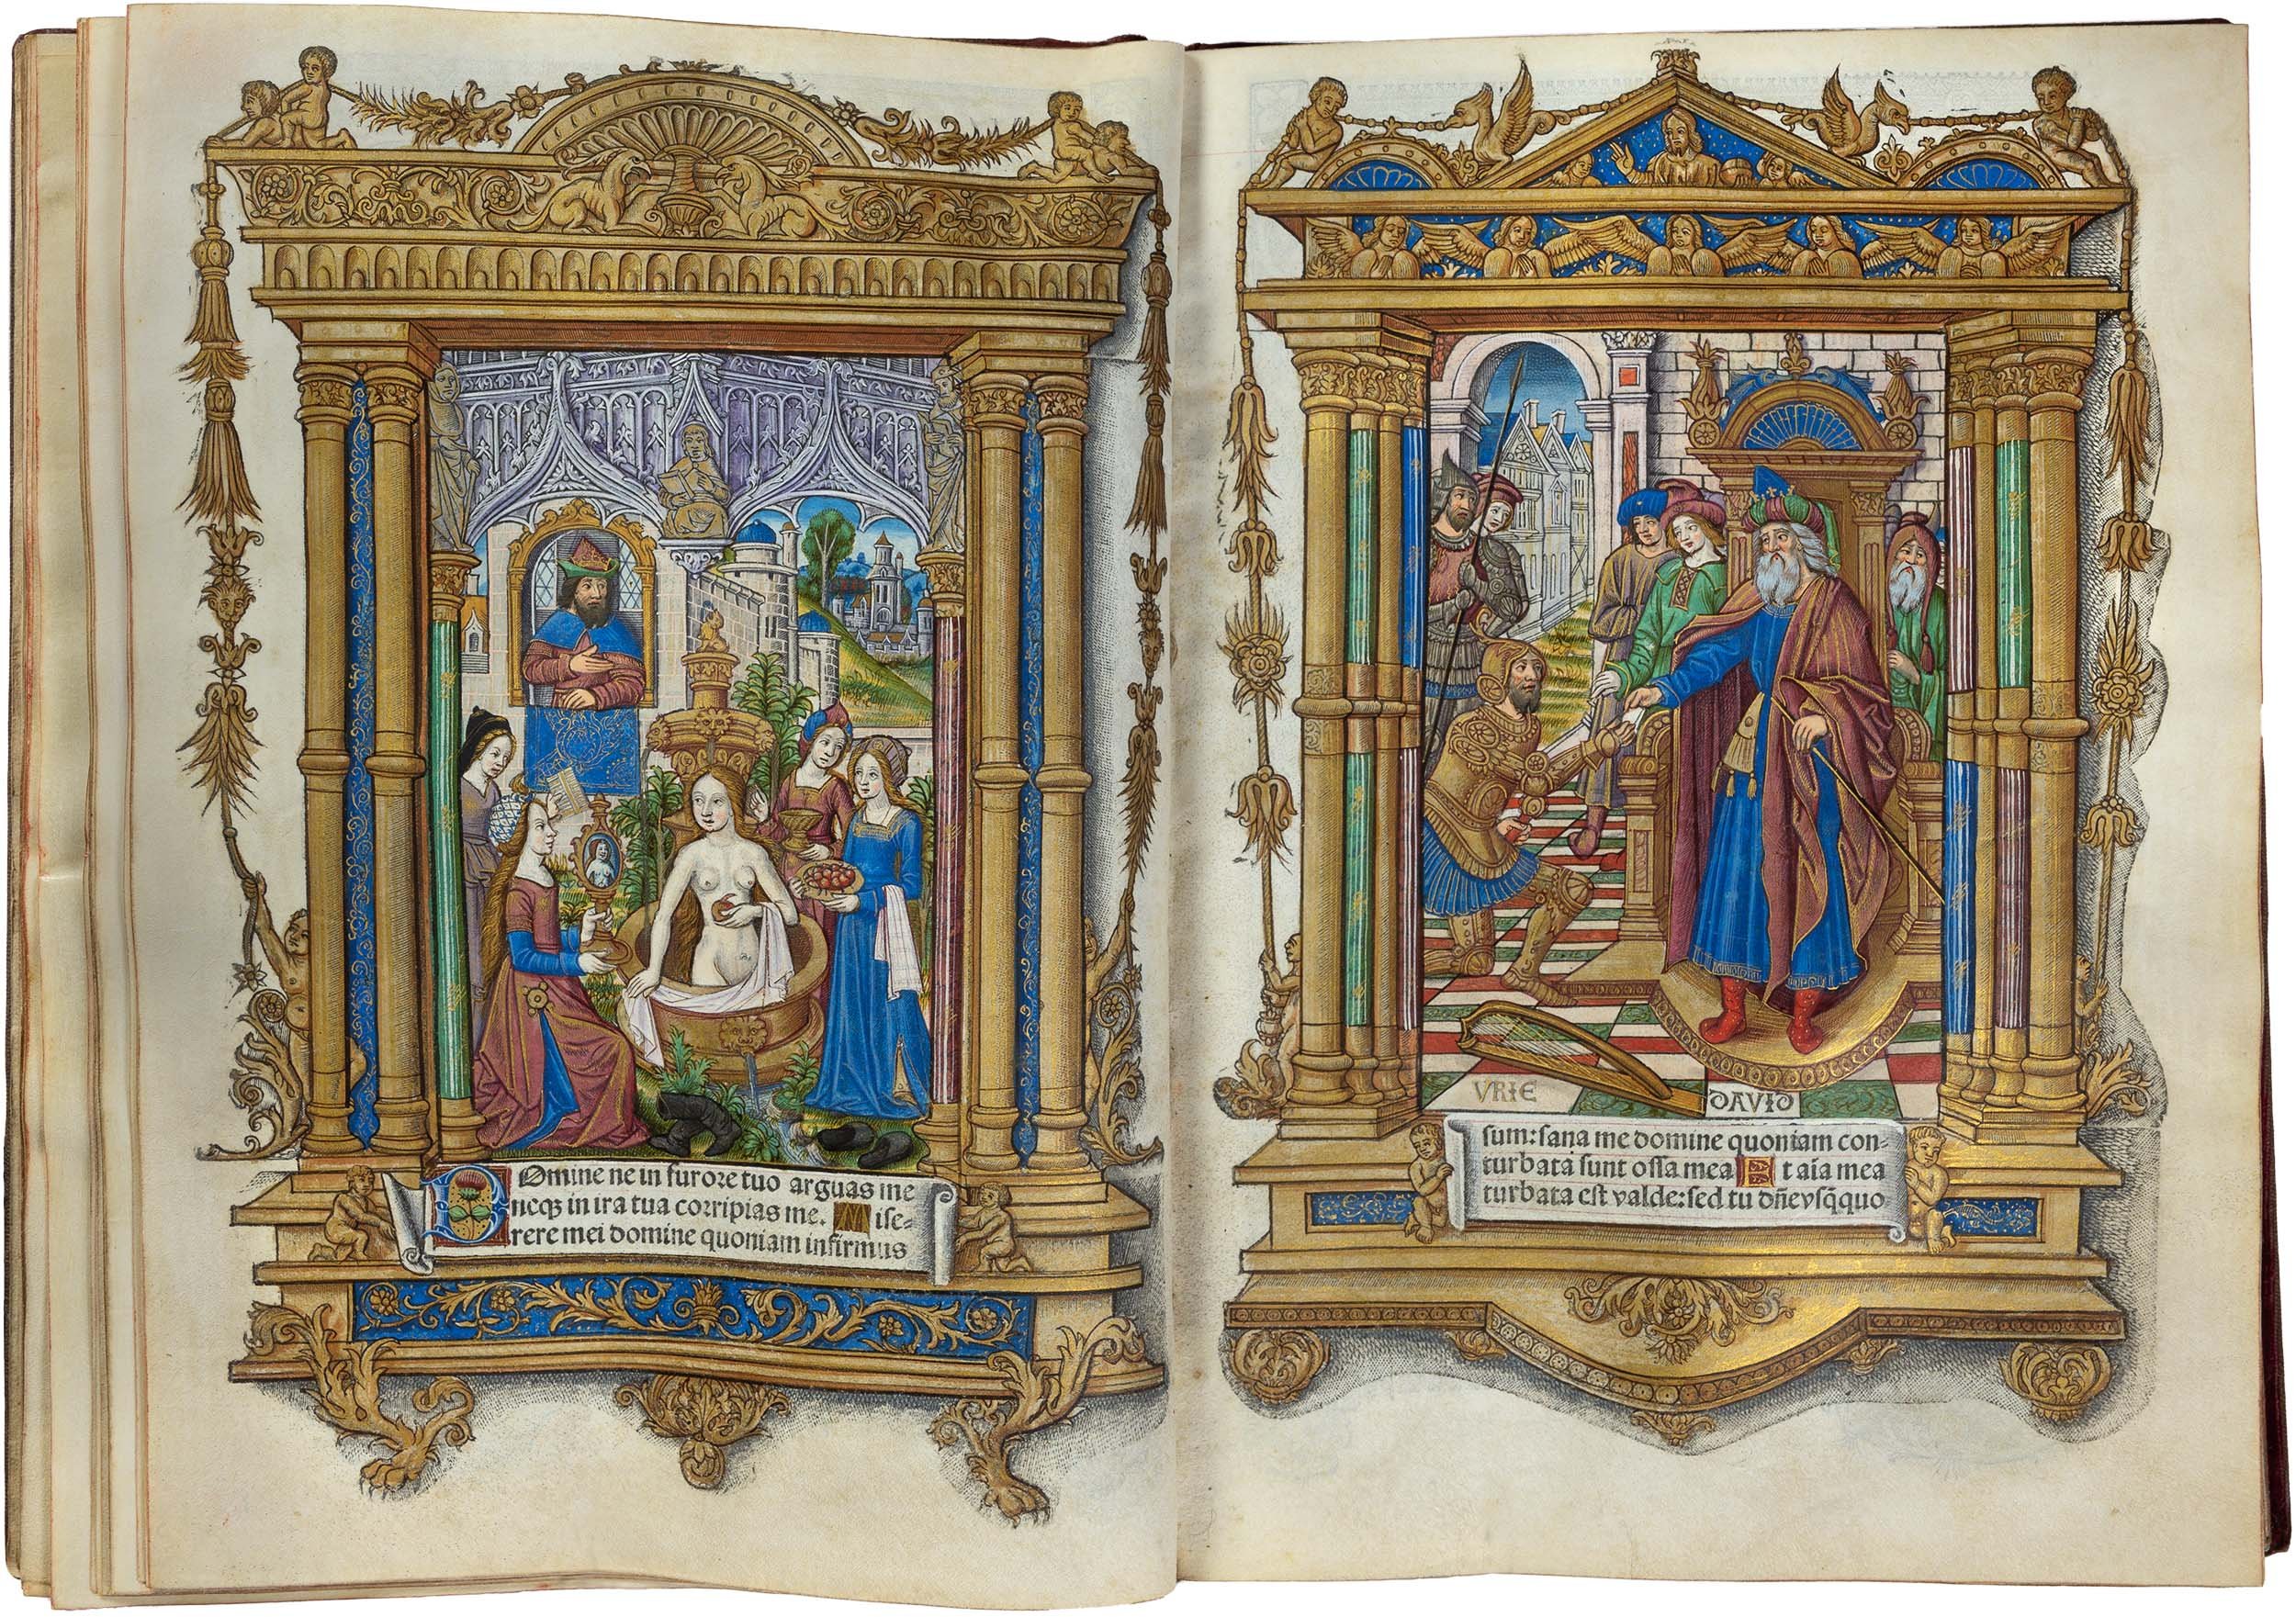 Domine ne in furore tuo arguas me
neqȝ in ira tua corripias me. Mise-
rere mei domine quoniam infirmus
VRIE DAVID
sum: sana me domine quoniam con-
turbata sunt ossa mea Et aīa mea
turbata est valde: sed tu dn̄e vsq̄quo